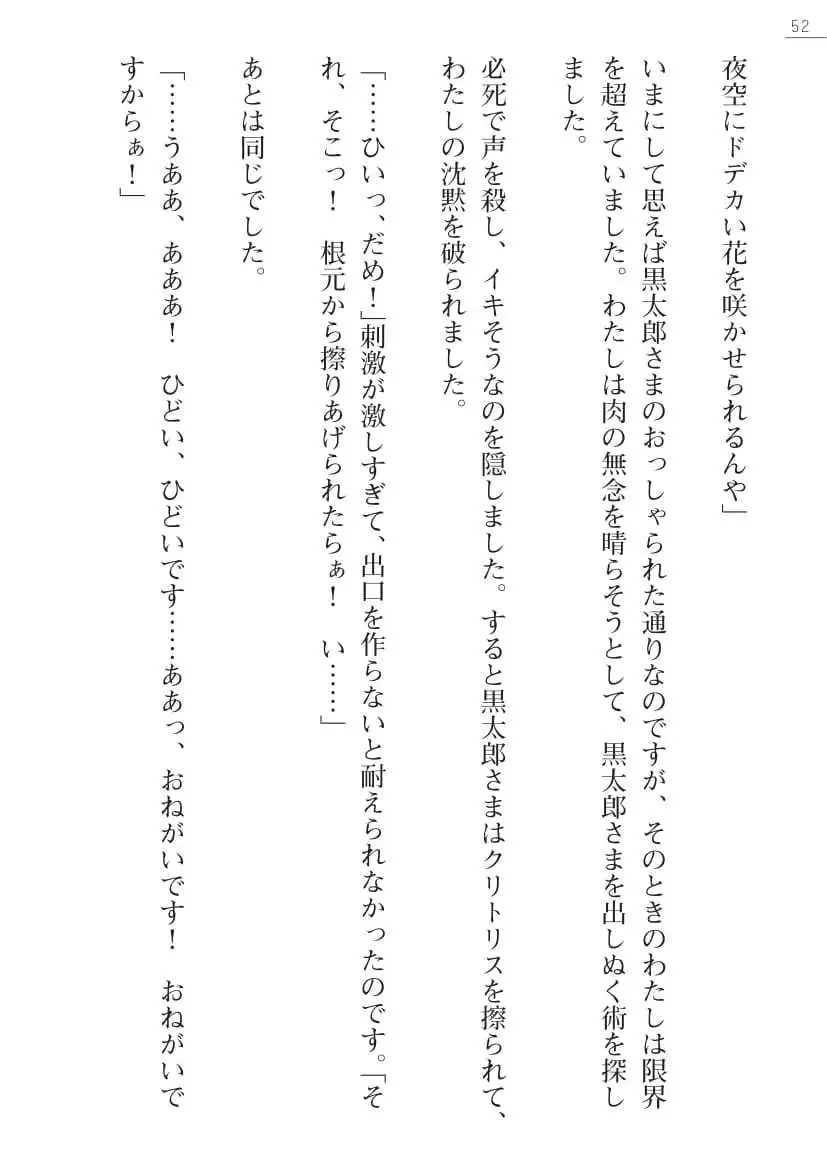 52
夜空にドデカい花を咲かせられるんや」
いまにして思えば黒太郎さまのおっしゃられた通りなのですが、そのときのわたしは限界
を超えていました。わたしは肉の無念を晴らそうとして、黒太郎さまを出しぬく術を探し
ました。
必死で声を殺し、イキそうなのを隠しました。すると黒太郎さまはクリトリスを擦られて、
わたしの沈黙を破られました。
「……ひいっ、だめ！」刺激が激しすぎて、出口を作らないと耐えられなかったのです。「そ
れ、そこっ！　根元から擦りあげられたらぁ！　い……」
あとは同じでした。
「……うああ、あああ！　ひどい、ひどいです……ああっ、おねがいです！　おねがいで
すからぁ！」